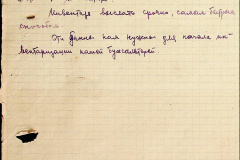 Инвентарь выслать срочно, самым быстрым
способом.
Эти данные нам нужны для начала ин-
вентаризации нашей бухгалтерией.